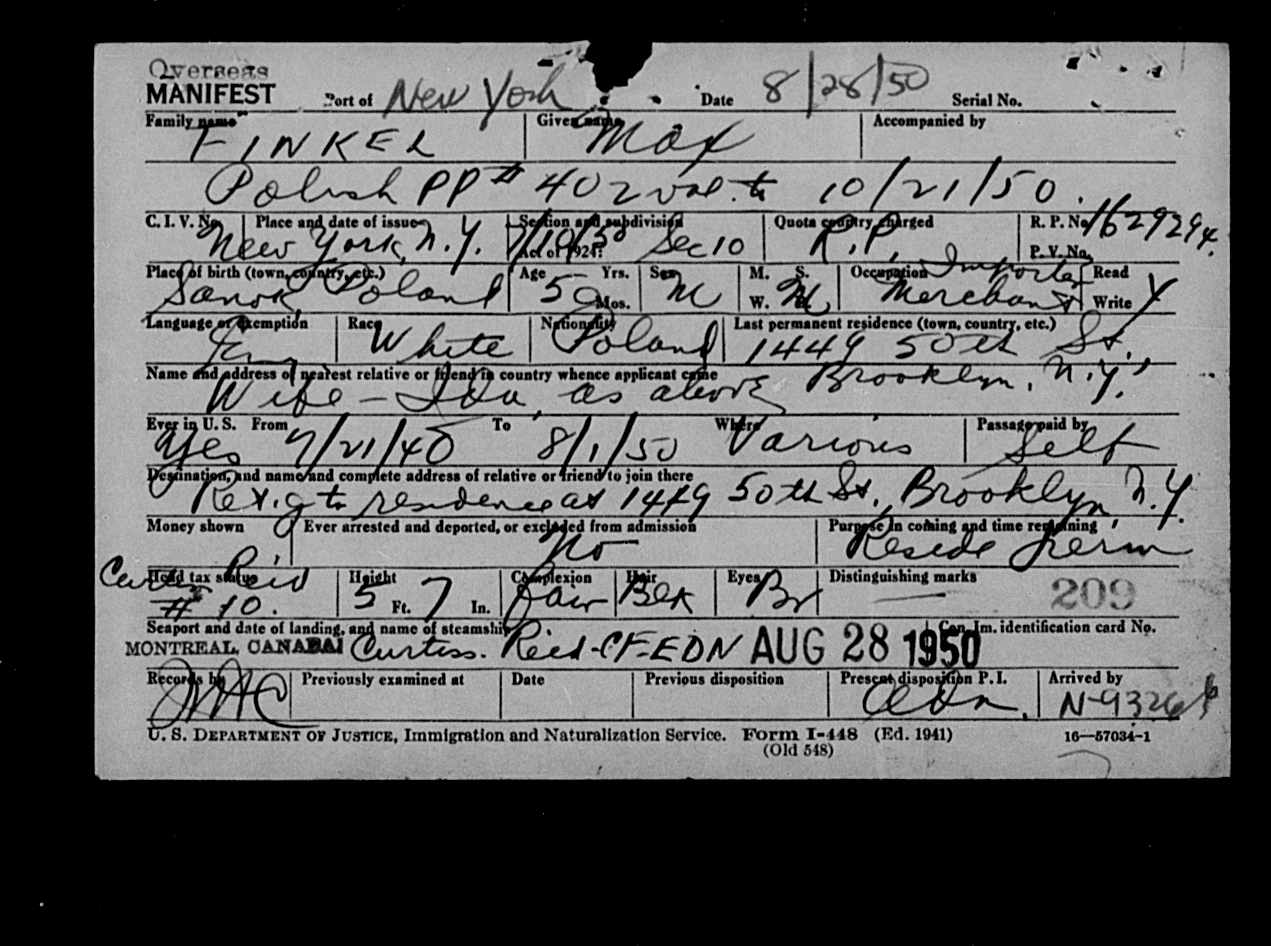 Overseas
MANIFEST Port of New York Date 8/28/50 Serial No.
Family name FINKEL Given name Max Accompanied by
Polish PP # 402 val. to 10/21/50.
C. I. V. No. Place and date of issue Section and subdivision Act of 1924. Quota country charged R. P. No. 1629294.
New York, N.Y. Sec 10 R.P. P. V. No.
Place of birth (town, country, etc.) Age Yrs. Sex M. S. Occupation Importer Read
Sanok, Poland 50 Mos. M W. M Merchant Write Y
Language or exemption Race Nationality Last permanent residence (town, country, etc.)
Eng White Poland 1449 50th St.
Name and address of nearest relative or friend in country whence applicant came Brooklyn, N.Y.
Wife - Ida, as above
Ever in U. S. From To Where Passage paid by
Yes 7/21/40 8/1/50 Various Self
Destination, and name and complete address of relative or friend to join there
Ret.g to residence at 1449 50th St., Brooklyn, N.Y.
Money shown Ever arrested and deported, or excluded from admission Purpose in coming and time remaining
No Reside Perm
Head tax status Curtiss Reid Height Complexion Hair Eyes Distinguishing marks
# 10. 5 Ft. 7 In. Fair Blk Br — 209
Seaport and date of landing, and name of steamship Can. Im. identification card No.
MONTREAL, CANADA Curtiss. Reid-CF-EDN AUG 28 1950
Records by Previously examined at Date Previous disposition Present disposition P. I. Arrived by
Adm. N-9326
U. S. DEPARTMENT OF JUSTICE, Immigration and Naturalization Service. Form I-448 (Ed. 1941) 16—57034-1
(Old 548)